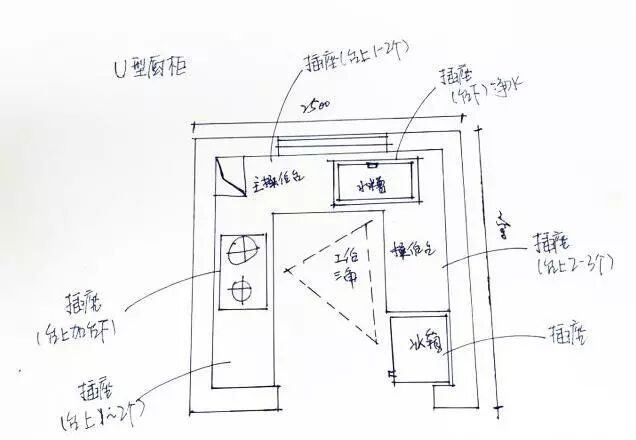 U型厨柜
插座(台上1-2个)
插座
(台下)净水
2500
主操作台
水槽
工作
三角
操作台
插座
(台上2-3个)
插座
(台上加台下)
冰箱
插座
插座
(台上1~2个)